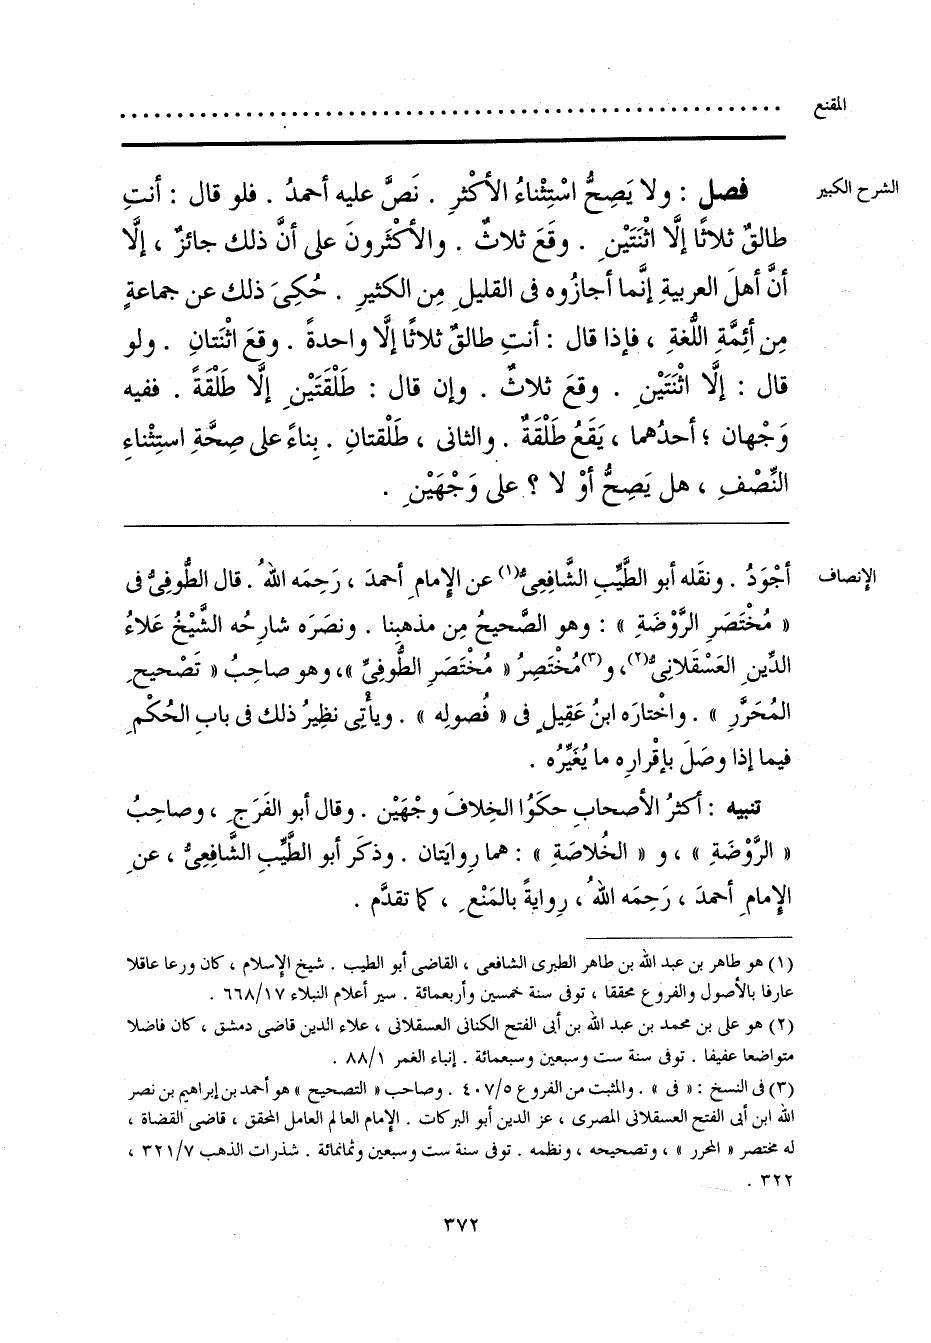 المقنع ......................................................
الشرح الكبير
فصل : ولا يَصِحُّ اسْتِثْناءُ الأكْثرِ . نَصَّ عليه أحمدُ . فلو قال : أنتِ
طالقٌ ثلاثًا إلَّا اثْنَتَيْنِ . وقَعَ ثلاثٌ . والأكْثَرونَ على أنَّ ذلك جائزٌ ، إلَّا
أنَّ أهلَ العربيةِ إنَّما أجازُوه فى القليلِ مِن الكثيرِ . حُكِىَ ذلك عن جماعةٍ
مِن أئِمَّةِ اللُّغةِ ، فإذا قال : أنتِ طالقٌ ثلاثًا إلَّا واحدةً . وقعَ اثْنَتانِ . ولو
قال : إلَّا اثْنَتَيْنِ . وقعَ ثلاثٌ . وإن قال : طَلْقَتَيْنِ إلَّا طَلْقَةً . ففيه
وَجْهان ؛ أحدُهما ، يَقَعُ طَلْقَةٌ . والثانى ، طَلْقتانِ . بِناءً على صِحَّةِ استِثْناءِ
النِّصْفِ ، هل يَصِحُّ أوْ لا ؟ على وَجْهَيْنِ .
الإنصاف
أجْوَدُ . ونقَله أبو الطَّيِّبِ الشَّافِعِىُّ(١) عن الإِمامِ أحمدَ ، رَحِمَه اللهُ . قال الطُّوفِىُّ فى
« مُخْتَصَرِ الرَّوْضَةِ » : وهو الصَّحيحُ مِن مذهبِنا . ونصَرَه شارِحُه الشَّيْخُ عَلاءُ
الدِّينِ العَسْقَلانِىُّ(٢)، و(٣)مُخْتَصِرُ « مُخْتَصَرِ الطُّوفِىِّ »، وهو صاحِبُ « تَصْحيحِ
المُحَرَّرِ » . واخْتارَه ابنُ عَقِيلٍ فى « فُصولِه » . ويأْتِى نظِيرُ ذلك فى بابِ الحُكْمِ
فيما إذا وصَلَ بإقْرارِه ما يُغَيِّرُه .
تنبيه : أكثرُ الأصحابِ حكَوُا الخِلافَ وَجْهَيْن . وقال أبو الفَرَجِ ، وصاحِبُ
« الرَّوْضَةِ » ، و « الخُلاصَةِ » : هما رِوايَتان . وذكَر أبو الطَّيِّبِ الشَّافِعِىُّ ، عنِ
الإِمامِ أحمدَ ، رَحِمَه اللهُ ، رِوايةً بالمَنْعِ ، كما تقدَّم .
(١) هو طاهر بن عبد الله بن طاهر الطبرى الشافعى ، القاضى أبو الطيب . شيخ الإسلام ، كان ورعا عاقلا
عارفا بالأصول والفروع محققا ، توفى سنة خمسين وأربعمائة . سير أعلام النبلاء ٦٦٨/١٧ .
(٢) هو على بن محمد بن عبد الله بن أبى الفتح الكنانى العسقلانى ، علاء الدين قاضى دمشق ، كان فاضلا
متواضعا عفيفا . توفى سنة ست وسبعين وسبعمائة . إنباء الغمر ٨٨/١ .
(٣) فى النسخ : « فى » . والمثبت من الفروع ٤٠٧/٥ . وصاحب « التصحيح » هو أحمد بن إبراهيم بن نصر
الله ابن أبى الفتح العسقلانى المصرى ، عز الدين أبو البركات . الإمام العالم العامل المحقق ، قاضى القضاة ،
له مختصر « المحرر » ، وتصحيحه ، ونظمه . توفى سنة ست وسبعين وثمانمائة . شذرات الذهب ٣٢١/٧ ،
٣٢٢ .
٣٧٢